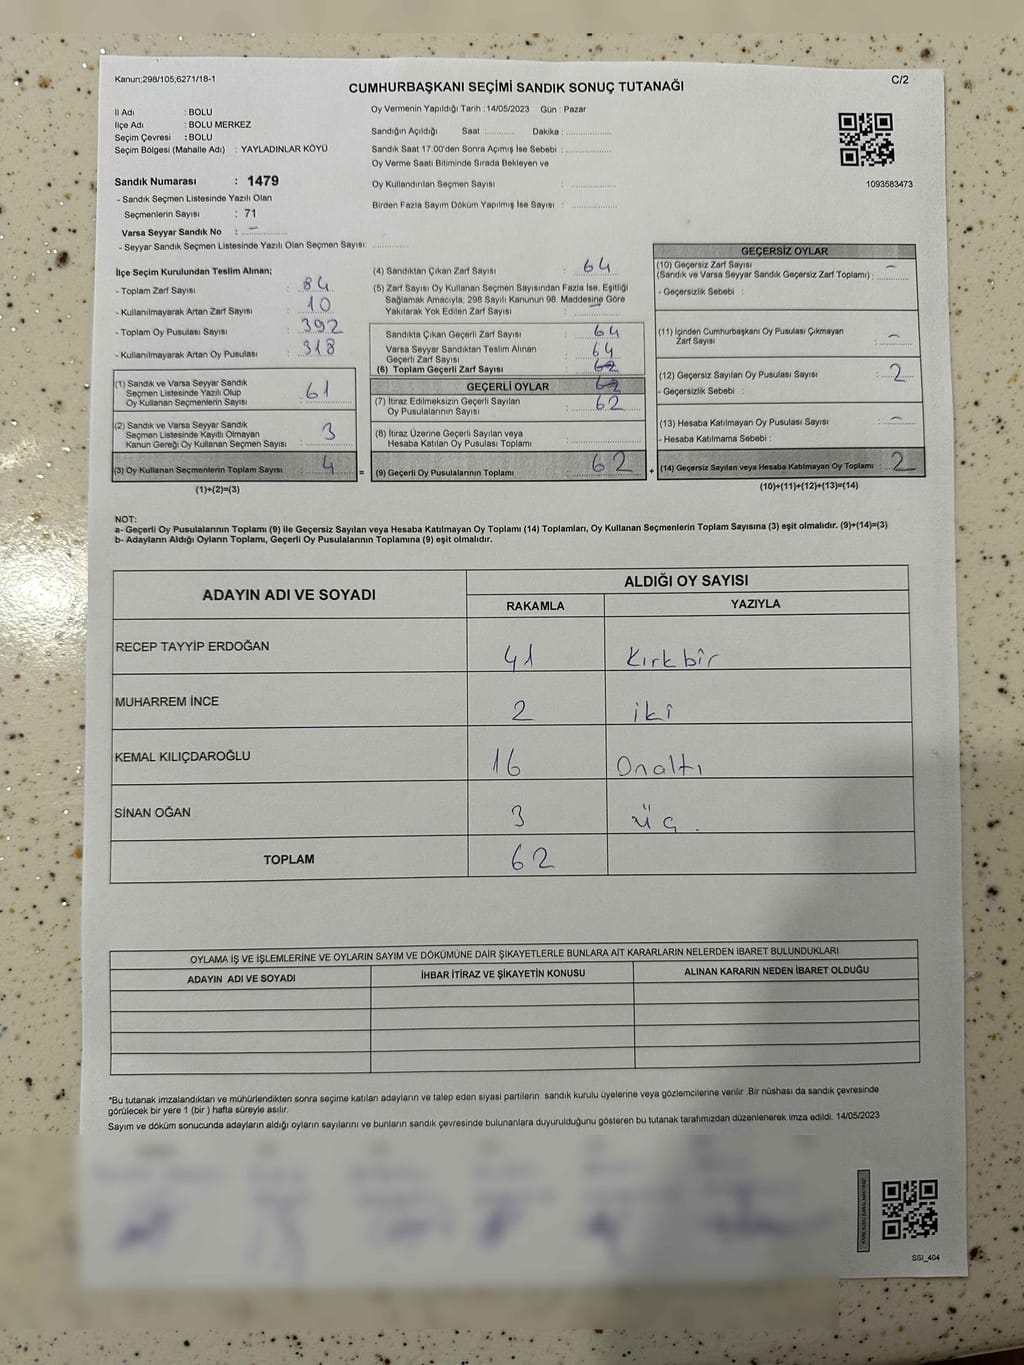 Kanun;298/105;6271/18-1
C/2
CUMHURBAŞKANI SEÇİMİ SANDIK SONUÇ TUTANAĞI
İl Adı : BOLU
İlçe Adı : BOLU MERKEZ
Seçim Çevresi : BOLU
Seçim Bölgesi (Mahalle Adı) : YAYLADINLAR KÖYÜ
Oy Vermenin Yapıldığı Tarih : 14/05/2023 Gün : Pazar
Sandığın Açıldığı Saat :.......... Dakika :..............
Sandık Saat 17:00'den Sonra Açımış İse Sebebi :..............
Oy Verme Saati Bitiminde Sırada Bekleyen ve
Oy Kullandırılan Seçmen Sayısı :..............
Birden Fazla Sayım Döküm Yapılmış İse Sayısı :..............
1093583473
Sandık Numarası : 1479
- Sandık Seçmen Listesinde Yazılı Olan
Seçmenlerin Sayısı : 71
Varsa Seyyar Sandık No : –
- Seyyar Sandık Seçmen Listesinde Yazılı Olan Seçmen Sayısı:..........
İlçe Seçim Kurulundan Teslim Alınan;
- Toplam Zarf Sayısı : 84
- Kullanılmayarak Artan Zarf Sayısı : 10
- Toplam Oy Pusulası Sayısı : 392
- Kullanılmayarak Artan Oy Pusulası : 318
(1) Sandık ve Varsa Seyyar Sandık
Seçmen Listesinde Yazılı Olup
Oy Kullanan Seçmenlerin Sayısı : 61
(2) Sandık ve Varsa Seyyar Sandık
Seçmen Listesinde Kayıtlı Olmayan
Kanun Gereği Oy Kullanan Seçmen Sayısı : 3
(3) Oy Kullanan Seçmenlerin Toplam Sayısı : 4 =
(1)+(2)=(3)
(4) Sandıktan Çıkan Zarf Sayısı : 64
(5) Zarf Sayısı Oy Kullanan Seçmen Sayısından Fazla İse, Eşitliği
Sağlamak Amacıyla, 298 Sayılı Kanunun 98. Maddesine Göre
Yakılarak Yok Edilen Zarf Sayısı : –
Sandıkta Çıkan Geçerli Zarf Sayısı : 64
Varsa Seyyar Sandıktan Teslim Alınan
Geçerli Zarf Sayısı : 64
(6) Toplam Geçerli Zarf Sayısı : 62
GEÇERLİ OYLAR 62
(7) İtiraz Edilmeksizin Geçerli Sayılan
Oy Pusulalarının Sayısı : 62
(8) İtiraz Üzerine Geçerli Sayılan veya
Hesaba Katılan Oy Pusulası Toplamı :
(9) Geçerli Oy Pusulalarının Toplamı : 62 +
GEÇERSİZ OYLAR
(10) Geçersiz Zarf Sayısı
(Sandık ve Varsa Seyyar Sandık Geçersiz Zarf Toplamı) : –
- Geçersizlik Sebebi :
(11) İçinden Cumhurbaşkanı Oy Pusulası Çıkmayan
Zarf Sayısı : –
(12) Geçersiz Sayılan Oy Pusulası Sayısı : 2
- Geçersizlik Sebebi :
(13) Hesaba Katılmayan Oy Pusulası Sayısı : –
- Hesaba Katılmama Sebebi :
(14) Geçersiz Sayılan veya Hesaba Katılmayan Oy Toplamı : 2
(10)+(11)+(12)+(13)=(14)
NOT:
a- Geçerli Oy Pusulalarının Toplamı (9) ile Geçersiz Sayılan veya Hesaba Katılmayan Oy Toplamı (14) Toplamları, Oy Kullanan Seçmenlerin Toplam Sayısına (3) eşit olmalıdır. (9)+(14)=(3)
b- Adayların Aldığı Oyların Toplamı, Geçerli Oy Pusulalarının Toplamına (9) eşit olmalıdır.
ADAYIN ADI VE SOYADI ALDIĞI OY SAYISI
RAKAMLA YAZIYLA
RECEP TAYYİP ERDOĞAN 41 Kırkbir
MUHARREM İNCE 2 iki
KEMAL KILIÇDAROĞLU 16 Onaltı
SİNAN OĞAN 3 üç.
TOPLAM 62
OYLAMA İŞ VE İŞLEMLERİNE VE OYLARIN SAYIM VE DÖKÜMÜNE DAİR ŞİKAYETLERLE BUNLARA AİT KARARLARIN NELERDEN İBARET BULUNDUKLARI
ADAYIN ADI VE SOYADI İHBAR İTİRAZ VE ŞİKAYETİN KONUSU ALINAN KARARIN NEDEN İBARET OLDUĞU
*Bu tutanak imzalandıktan ve mühürlendikten sonra seçime katılan adayların ve talep eden siyasi partilerin sandık kurulu üyelerine veya gözlemcilerine verilir .Bir nüshası da sandık çevresinde
görülecek bir yere 1 (bir ) hafta süreyle asılır.
Sayım ve döküm sonucunda adayların aldığı oyların sayılarını ve bunların sandık çevresinde bulunanlara duyurulduğunu gösteren bu tutanak tarafımızdan düzenlenerek imza edildi. 14/05/2023
SSI_404